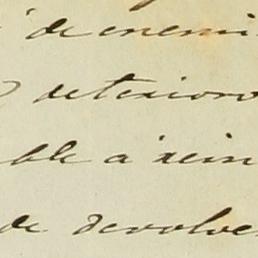 de enemi
deterioro
ble a rein
de devolve